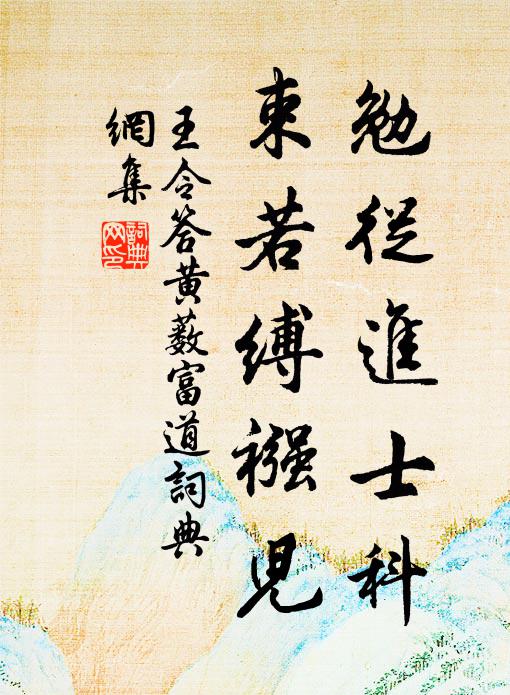 勉從進士科
束若縛襁兒
王令答黄薮富道詞典
網集
詞典網印